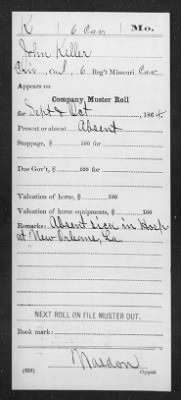 K 6 Cav. Mo.
John Keller
Priv., Co. I, 6 Reg't Missouri Cav.
Appears on
Company Muster Roll
for Sept & Oct, 1864.
Present or absent Absent
Stoppage, $ 100 for
Due Gov't, $ 100 for
Valuation of horse, $ 100
Valuation of horse equipments, $ 100
Remarks: Absent sick in Hosp
at New Orleans, La
NEXT ROLL ON FILE MUSTER OUT.
Book mark:
(858) Copyist.